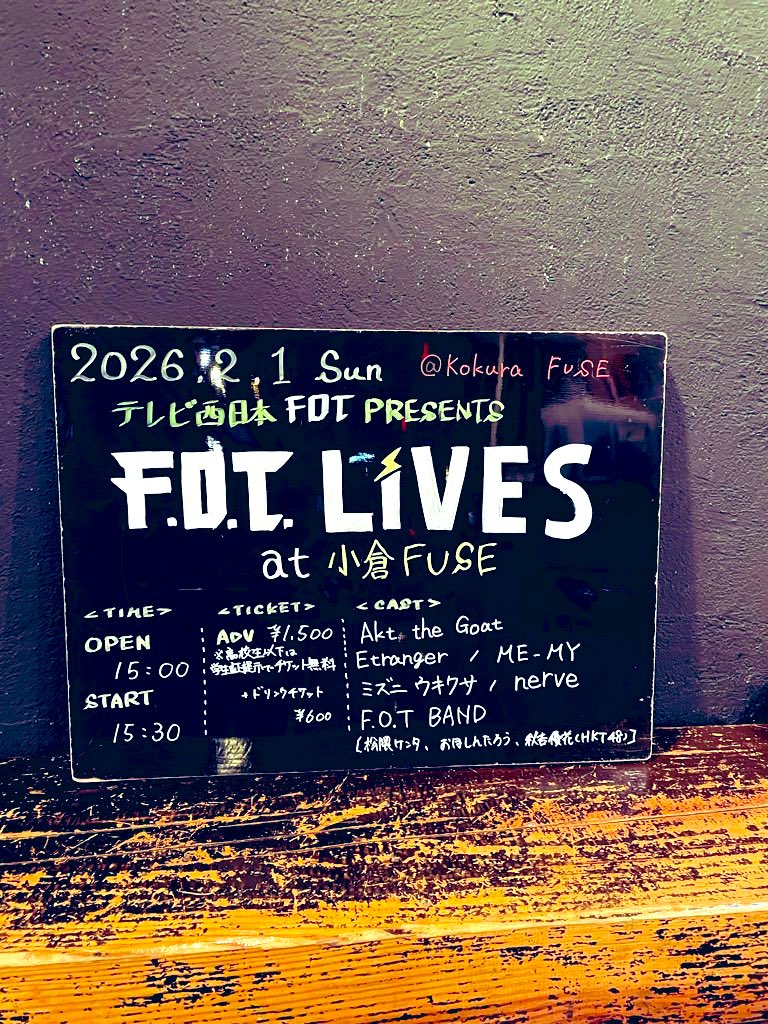 2026.2.1 Sun @Kokura FUSE
テレビ西日本 FOT PRESENTS
F.O.T. LiVES
at 小倉FUSE
<TIME>
OPEN
15:00
START
15:30
<TICKET>
ADV ¥1.500
※高校生以下は
学生証提示でチケット無料
+ドリンクチケット
¥600
<CAST>
Akt. the Goat
Etranger / ME-MY
ミズニウキクサ / nerve
F.O.T BAND
[松隈ケンタ、おほしんたろう、秋吉優花(HKT48)]